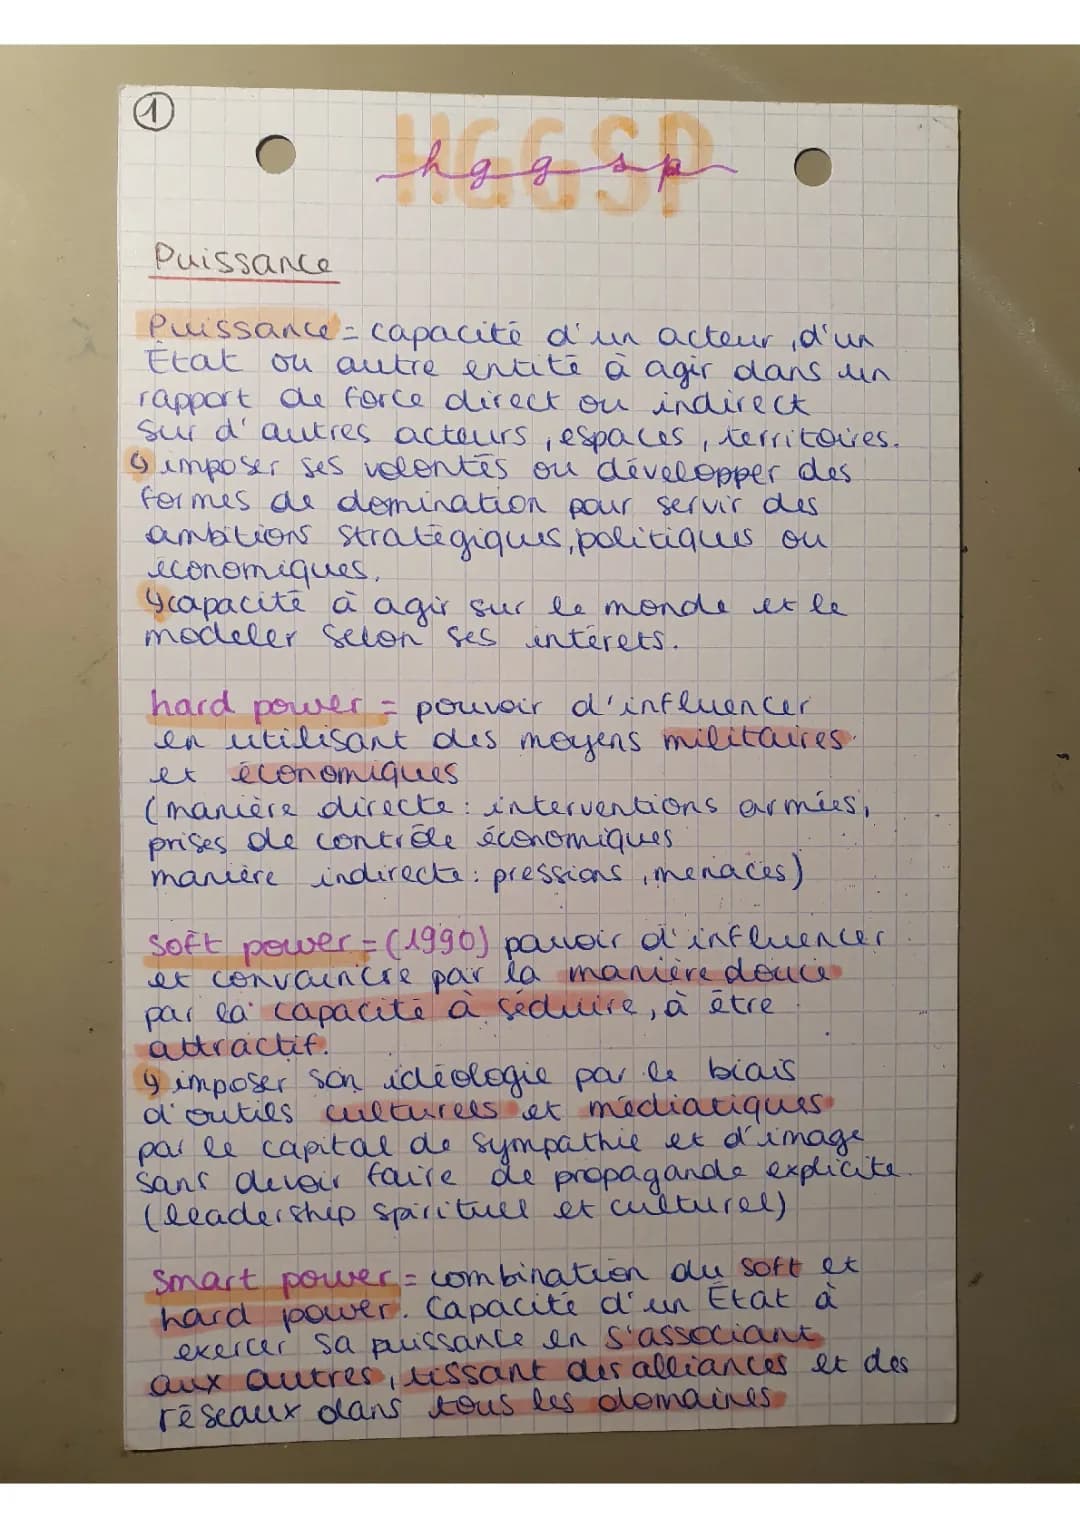 1
HGGSP
hggsp
Puissance
Puissance = capacité d'un acteur, d'un
État ou autre entité à agir dans un
rapport de force direct ou indirect
sur d'autres acteurs, espaces, territoires.
↳ imposer ses volontés ou développer des
formes de domination pour servir des
ambitions stratégiques, politiques ou
économiques.
↳ capacité à agir sur le monde et le
modeler selon ses intérets.
hard power = pouvoir d'influencer
en utilisant des moyens militaires
et économiques
(manière directe : interventions armées,
prises de contrôle économiques
manière indirecte : pressions, menaces)
soft power = (1990) pouvoir d'influencer
et convaincre par la manière douce
par la capacité à séduire, à être
attractif.
↳ imposer son idéologie par le biais
d'outils culturels et médiatiques
par le capital de sympathie et d'image
sans devoir faire de propagande explicite.
(leadership spirituel et culturel)
Smart power = combination du soft et
hard power. Capacité d'un État à
exercer sa puissance en s'associant
aux autres, tissant des alliances et des
réseaux dans tous les domaines